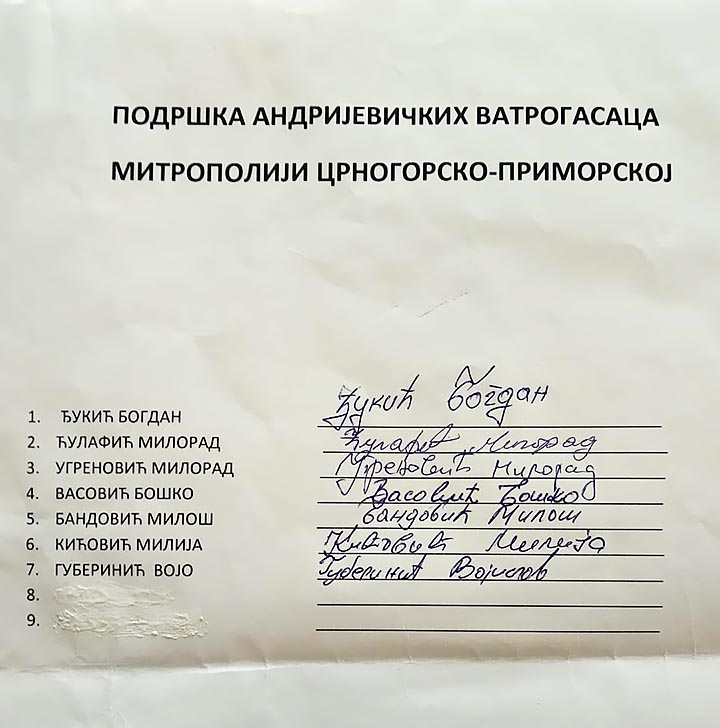 ПОДРШКА АНДРИЈЕВИЧКИХ ВАТРОГАСАЦА
МИТРОПОЛИЈИ ЦРНОГОРСКО-ПРИМОРСКОЈ
1. ЂУКИЋ БОГДАН Ђукић Богдан
2. ЋУЛАФИЋ МИЛОРАД Ћулафић Милорад
3. УГРЕНОВИЋ МИЛОРАД Угреновић Милорад
4. ВАСОВИЋ БОШКО Васовић Бошко
5. БАНДОВИЋ МИЛОШ Бандовић Милош
6. КИЋОВИЋ МИЛИЈА Кићовић Милија
7. ГУБЕРИНИЋ ВОЈО Губеринић
8.
9.